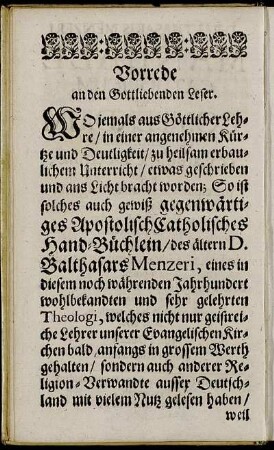 Vorrede
an den Gottliebenden Leser.
WO jemals aus Göttlicher Leh-
re / in einer angenehmen Kür-
tze und Deutligkeit / zu heilsam erbau-
lichem Unterricht / etwas geschrieben
und ans Licht bracht worden; So ist
solches auch gewiß gegenwärti-
ges ApostolischCatholisches
Hand-Büchlein / des ältern D.
Balthasars Menzeri, eines in
diesem noch währenden Jahrhundert
wohlbekandten und sehr gelehrten
Theologi, welches nicht nur geistrei-
che Lehrer unserer Evangelischen Kir-
chen bald anfangs in grossem Werth
gehalten / sondern auch anderer Re-
ligion-Verwandte ausser Deutsch-
land mit vielem Nutz gelesen haben /
weil